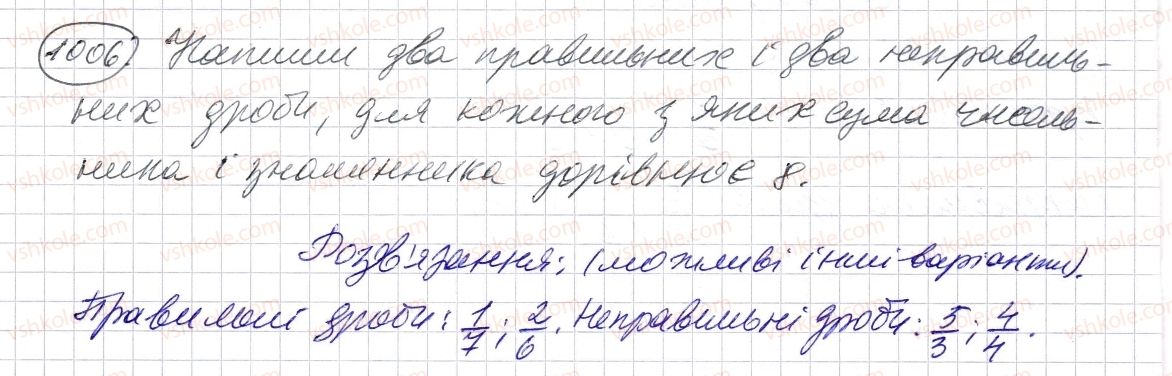 1006. Напиши два правильних і два неправиль-
них дроби, для кожного з яких сума чисель-
ника і знаменника дорівнює 8.
Розв'язання: (можливі інші варіанти).
Правильні дроби: 1/7; 2/6. Неправильні дроби: 5/3; 4/4.